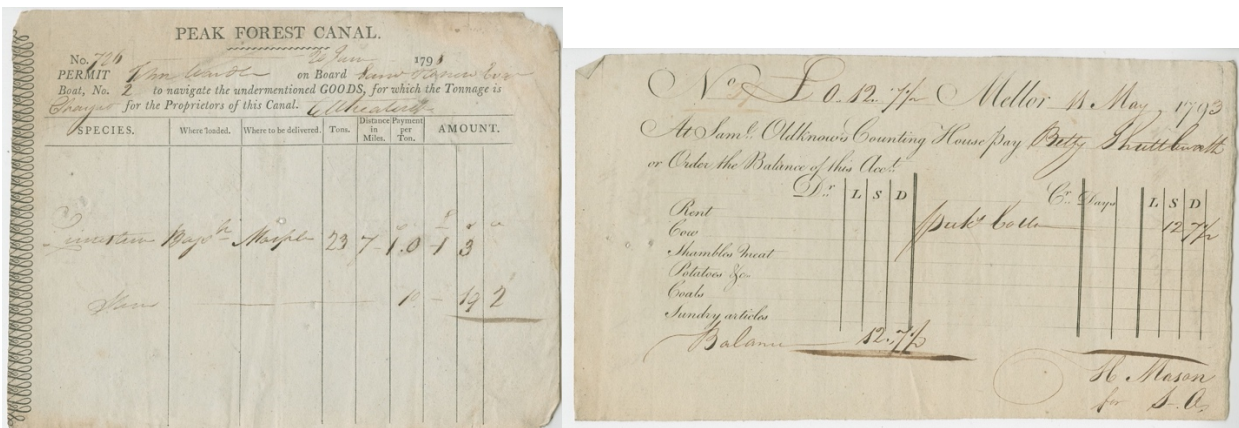 PEAK FOREST CANAL.
No. 726 20 Jun 179
PERMIT on Board
Boat, No. 2 to navigate the undermentioned GOODS, for which the Tonnage is
for the Proprietors of this Canal.
SPECIES. Where loaded. Where to be delivered. Tons. Distance in Miles. Payment per Ton. AMOUNT.
Limestone Marple 23 7 1.0 1 3
10 19 2
No. £0.12.7½ Mellor 11 May 1793
At Saml. Oldknow's Counting House pay Betty Shuttleworth
or Order the Balance of this Acct.
Dr. L S D Cr. Days L S D
Rent
Cow 12 7½
Shambles Meat
Potatoes &c
Coals
Sundry articles
Balance 12.7½
H. Mason
for S.O.